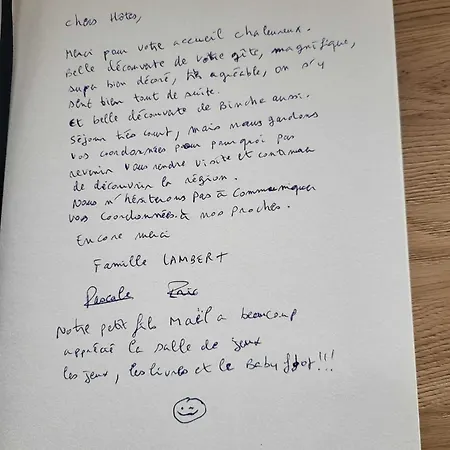 chers Hôtes,
Merci pour votre accueil chaleureux.
Belle découverte de votre gîte, magnifique,
super bien décoré, très agréable, on s'y
sent bien tout de suite.
Et belle découverte de Binche aussi.
Séjour très court, mais nous gardons
vos coordonnées pour pourquoi pas
revenir vous rendre visite et continuer
de découvrir la région.
Nous n'hésiterons pas à communiquer
vos coordonnées à nos proches.
Encore merci
Famille LAMBERT
Pascale Eric
Notre petit fils Maël a beaucoup
apprécié la salle de jeux
les jeux, les livres et le Baby foot!!!